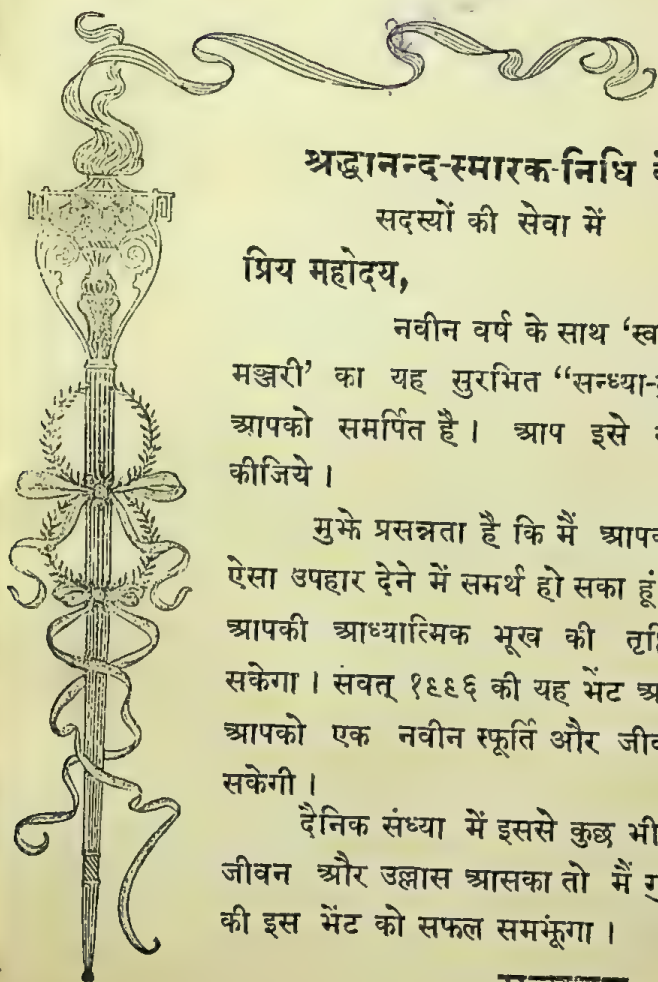 श्रद्धानन्द-स्मारक-निधि
सदस्यों की सेवा में
प्रिय महोदय,
नवीन वर्ष के साथ
मञ्जरी’ का यह सुरभित “सन्ध्या-
आपको समर्पित है। आप इसे
कीजिये।
मुझे प्रसन्नता है कि मैं
ऐसा उपहार देने में समर्थ हो सका हूं
आपकी आध्यात्मिक भूख की
सकेगा। संवत् १९९६ की यह भेंट
आपको एक नवीन स्फूर्ति और
सकेगी।
दैनिक संध्या में इससे कुछ भी
जीवन और उल्लास आसका तो मैं
की इस भेंट को सफल समझूंगा।